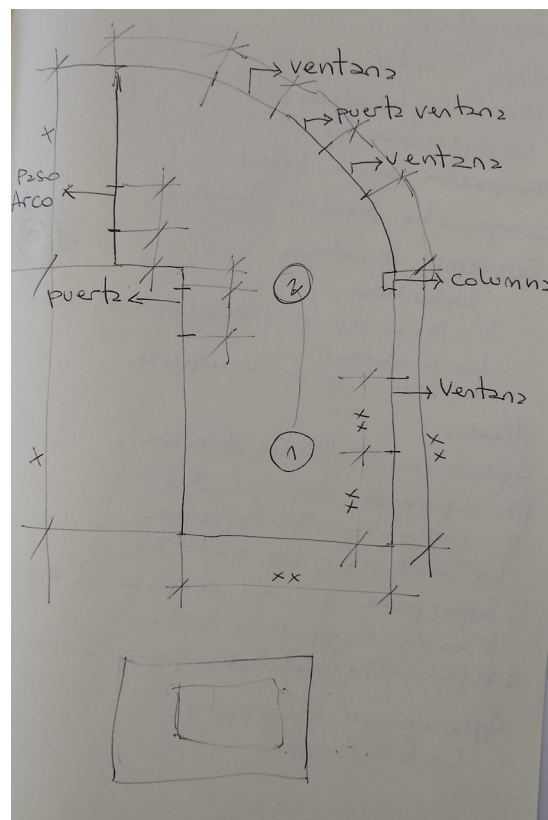 ventana
puerta ventana
ventana
x
Paso
Arco
puerta
2
columna
ventana
x
x
x
x
1
x
x
x
xx